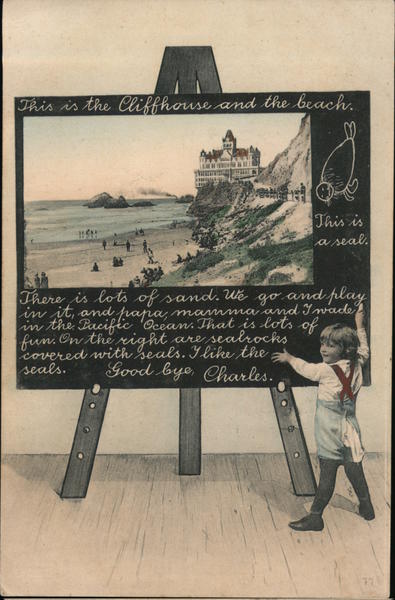 This is the Cliffhouse and the beach.
This is
a seal.
There is lots of sand. We go and play
in it, and papa, mamma and I wade
in the Pacific Ocean. That is lots of
fun. On the right are sealrocks
covered with seals. I like the
seals. Good bye, Charles.
77